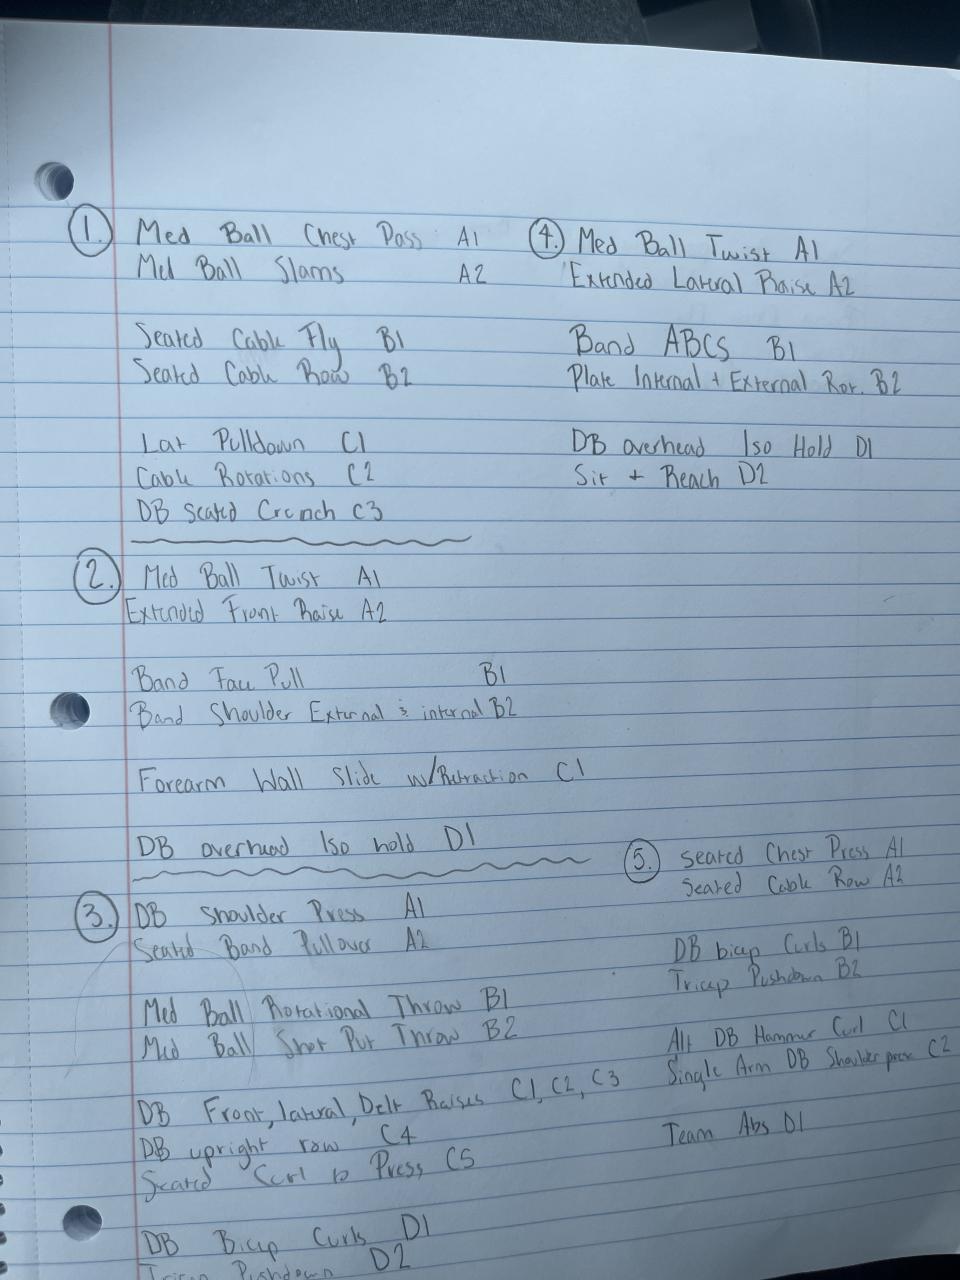 1. Med Ball Chest Pass A1
Med Ball Slams A2
Seated Cable Fly B1
Seated Cable Row B2
Lat Pulldown C1
Cable Rotations C2
DB Seated Crunch C3
2. Med Ball Twist A1
Extended Front Raise A2
Band Face Pull B1
Band Shoulder External & internal B2
Forearm Wall Slide w/Retraction C1
DB overhead Iso hold D1
3. DB Shoulder Press A1
Seated Band Pullover A2
Med Ball Rotational Throw B1
Med Ball Shot Put Throw B2
DB Front, lateral, Delt Raises C1, C2, C3
DB upright row C4
Seated Curl to Press C5
DB Bicep Curls D1
Tricep Pushdown D2
4. Med Ball Twist A1
Extended Lateral Raise A2
Band ABCS B1
Plate Internal + External Rot. B2
DB overhead Iso Hold D1
Sit + Reach D2
5. Seated Chest Press A1
Seated Cable Row A2
DB bicep Curls B1
Tricep Pushdown B2
Alt DB Hammer Curl C1
Single Arm DB Shoulder press C2
Team Abs D1